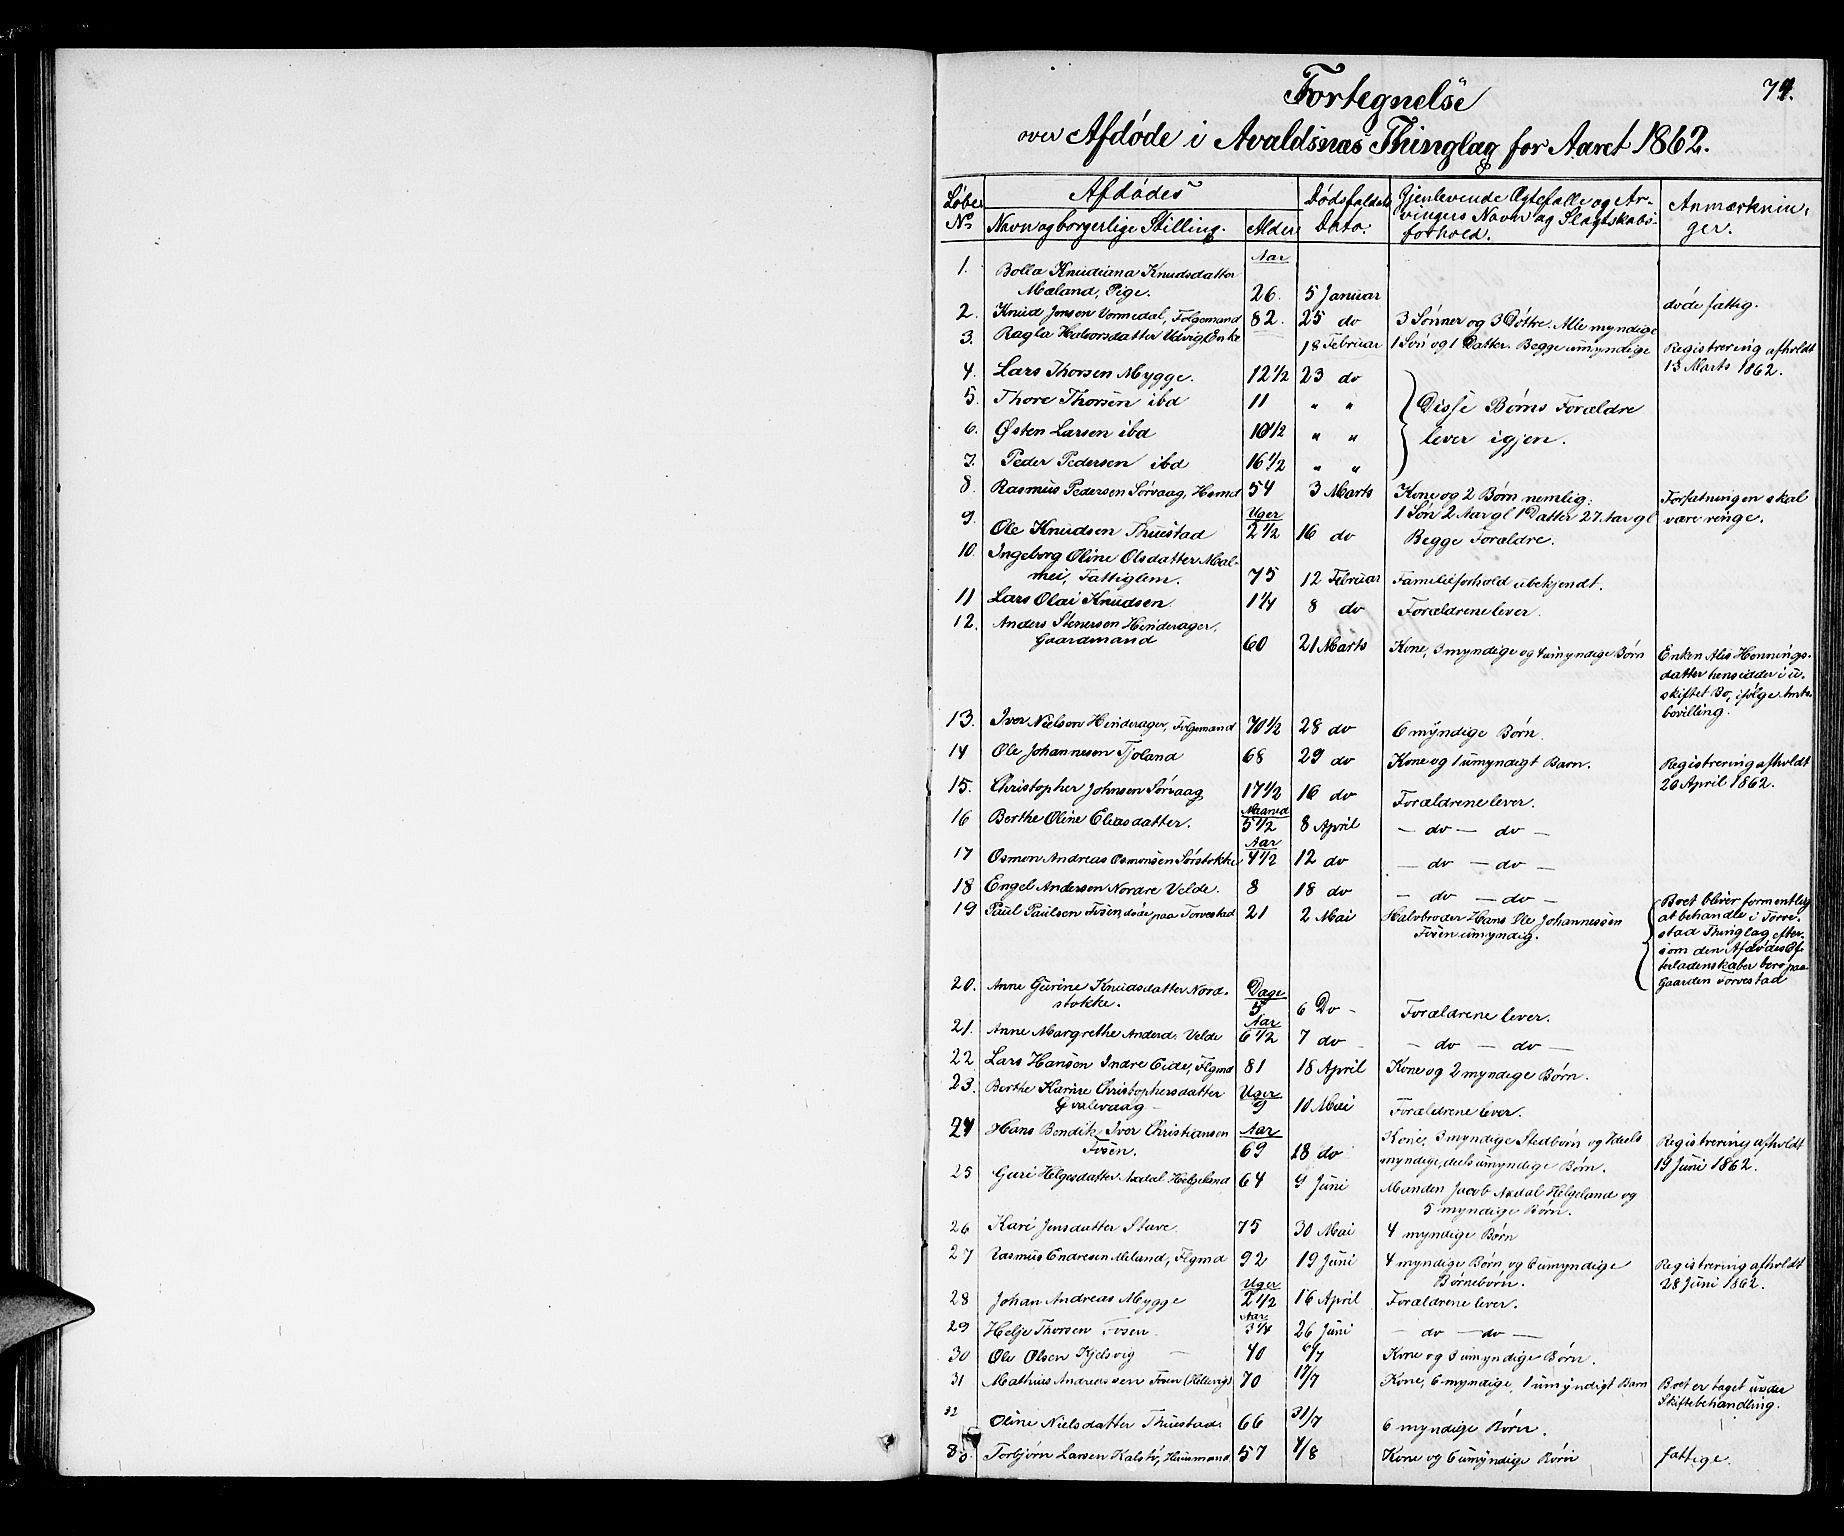 74.
Fortegnelse
over Afdøde i Avaldsnæs Thinglag for Aaret 1862.
Løbe No
Afdødes
Navn og borgerlige Stilling.
Alder
Dødsfaldets Dato.
Gjenlevende Ægtefælle og Arvingers Navn og Slagtskabsforhold.
Anmærkninger.
Aar
1. Bolla Knudiana Knudsdatter
Mæland, Pige. 26. 5 Januar døde fattig.
2. Knud Jonsen Vormedal, Folgemand 82. 25 do 3 Sønner og 3 Døttre. Alle myndige
3. Ragla Halvorsdatter Udvig, Enke 18 Februar 1 Søn og 1 Datter. Begge umyndige Registrering afholdt
13 Marts 1862.
4. Lars Thorsen Mygge. 12 1/2 23 do
5. Thore Thorsen ibd 11 " " Disse Børns Forældre
6. Østen Larsen ibd 10 1/2 " " lever igjen.
7. Peder Pedersen ibd 16 1/2 " "
8. Rasmus Pedersen Sørvaag, Hsmd 54 3 Marts Kone og 2 Børn nemlig: Forfatningen skal
1 Søn 2 Aar gl 1 Datter 27 Aar gl være ringe.
9. Uger
Ole Knudsen Thuestad 2 1/2 16 do Begge Forældre.
10. Ingeborg Oline Olsdatter Mal-
mei, Fattiglem. 75 12 Februar Familieforhold ubekjendt.
11 Lars Olai Knudsen 1 1/4 8 do Forældrene lever.
12. Anders Stenersen Hinderager,
Gaardmand 60 21 Marts Kone, 3 myndige og 4 umyndige Børn Enken Alis Hennings-
datter hensidder i u-
skiftet Bo, ifølge Amts-
bevilling.
13. Iver Nielsen Hinderager, Folgemand 70 1/2 28 do 6 myndige Børn.
14 Ole Johannesen Tjoland 68 29 do Kone og 1 umyndigt Barn. Registrering afholdt
26 April 1862.
15. Christopher Johnsen Sørvaag 17 1/2 16 do Forældrene lever.
Maaned
16 Berthe Oline Eliasdatter. 5 1/2 8 April — do — do —
Aar
17 Osmon Andreas Osmonsen Sørstokke 4 1/2 12 do — do — do —
18 Engel Andersen Nordre Velde. 8 18 do — do — do —
19 Paul Paulsen Fosen døde paa Torvestad 21 2 Mai Halvbroder Hans Ole Johannessen
Fosen umyndig.
Boet bliver formentlig
at behandle i Torve-
stad Thinglag efter-
som den Afdødes Ef-
terladenskaber bero paa
Gaarden Torvestad
20. Anne Gurine Knudsdatter Nord- Dage
stokke. 5 6 Do — Forældrene lever.
Aar
21. Anne Margrethe Andersd. Velde 6 1/2 7 do — — do — do —
22 Lars Hansen Indre Eide, Flgmd 81 18 April Kone og 2 myndige Børn.
23. Berthe Karine Christophersdatter Uger
Gvalevaag — 9 10 Mai Forældrene lever.
24 Hans Bendik Iver Christiansen Aar Kone, 3 myndige Stedbørn og 7 dels Registrering afholdt
Fosen. 69 28 do myndige, deels umyndige Børn. 19 Juni 1862.
25 Guri Helgesdatter Axdal Helgeland 64 9 Juni Manden Jacob Axdal Helgeland og
5 myndige Børn.
26 Kari Jensdatter Stave. 75 30 Mai 4 myndige Børn
27 Rasmus Endresen Meland, Flgmd 92 19 Juni 4 myndige Børn og 6 umyndige Registrering afholdt
Børnebørn. 28 Juni 1862.
Uger
28 Johan Andreas Mygge 2 1/2 16 April Forældrene lever.
Aar
29 Helje Thorsen Fosen 3 1/4 26 Juni — do — do —
30 Ole Olsen Kjelsvig — 40 6/7 Kone og 3 umyndige Børn.
31 Mathias Andreassen Fosen (Hellevig) 70 17/7 Kone, 6 myndige, 1 umyndigt Barn Boet er taget under
Skiftebehandling.
32 Oline Nielsdatter Thuestad. 66 31/7 6 myndige Børn.
33. Torbjørn Larsen Kalstø, Huusmand 57 4/8 Kone og 6 umyndige Børn fattige.